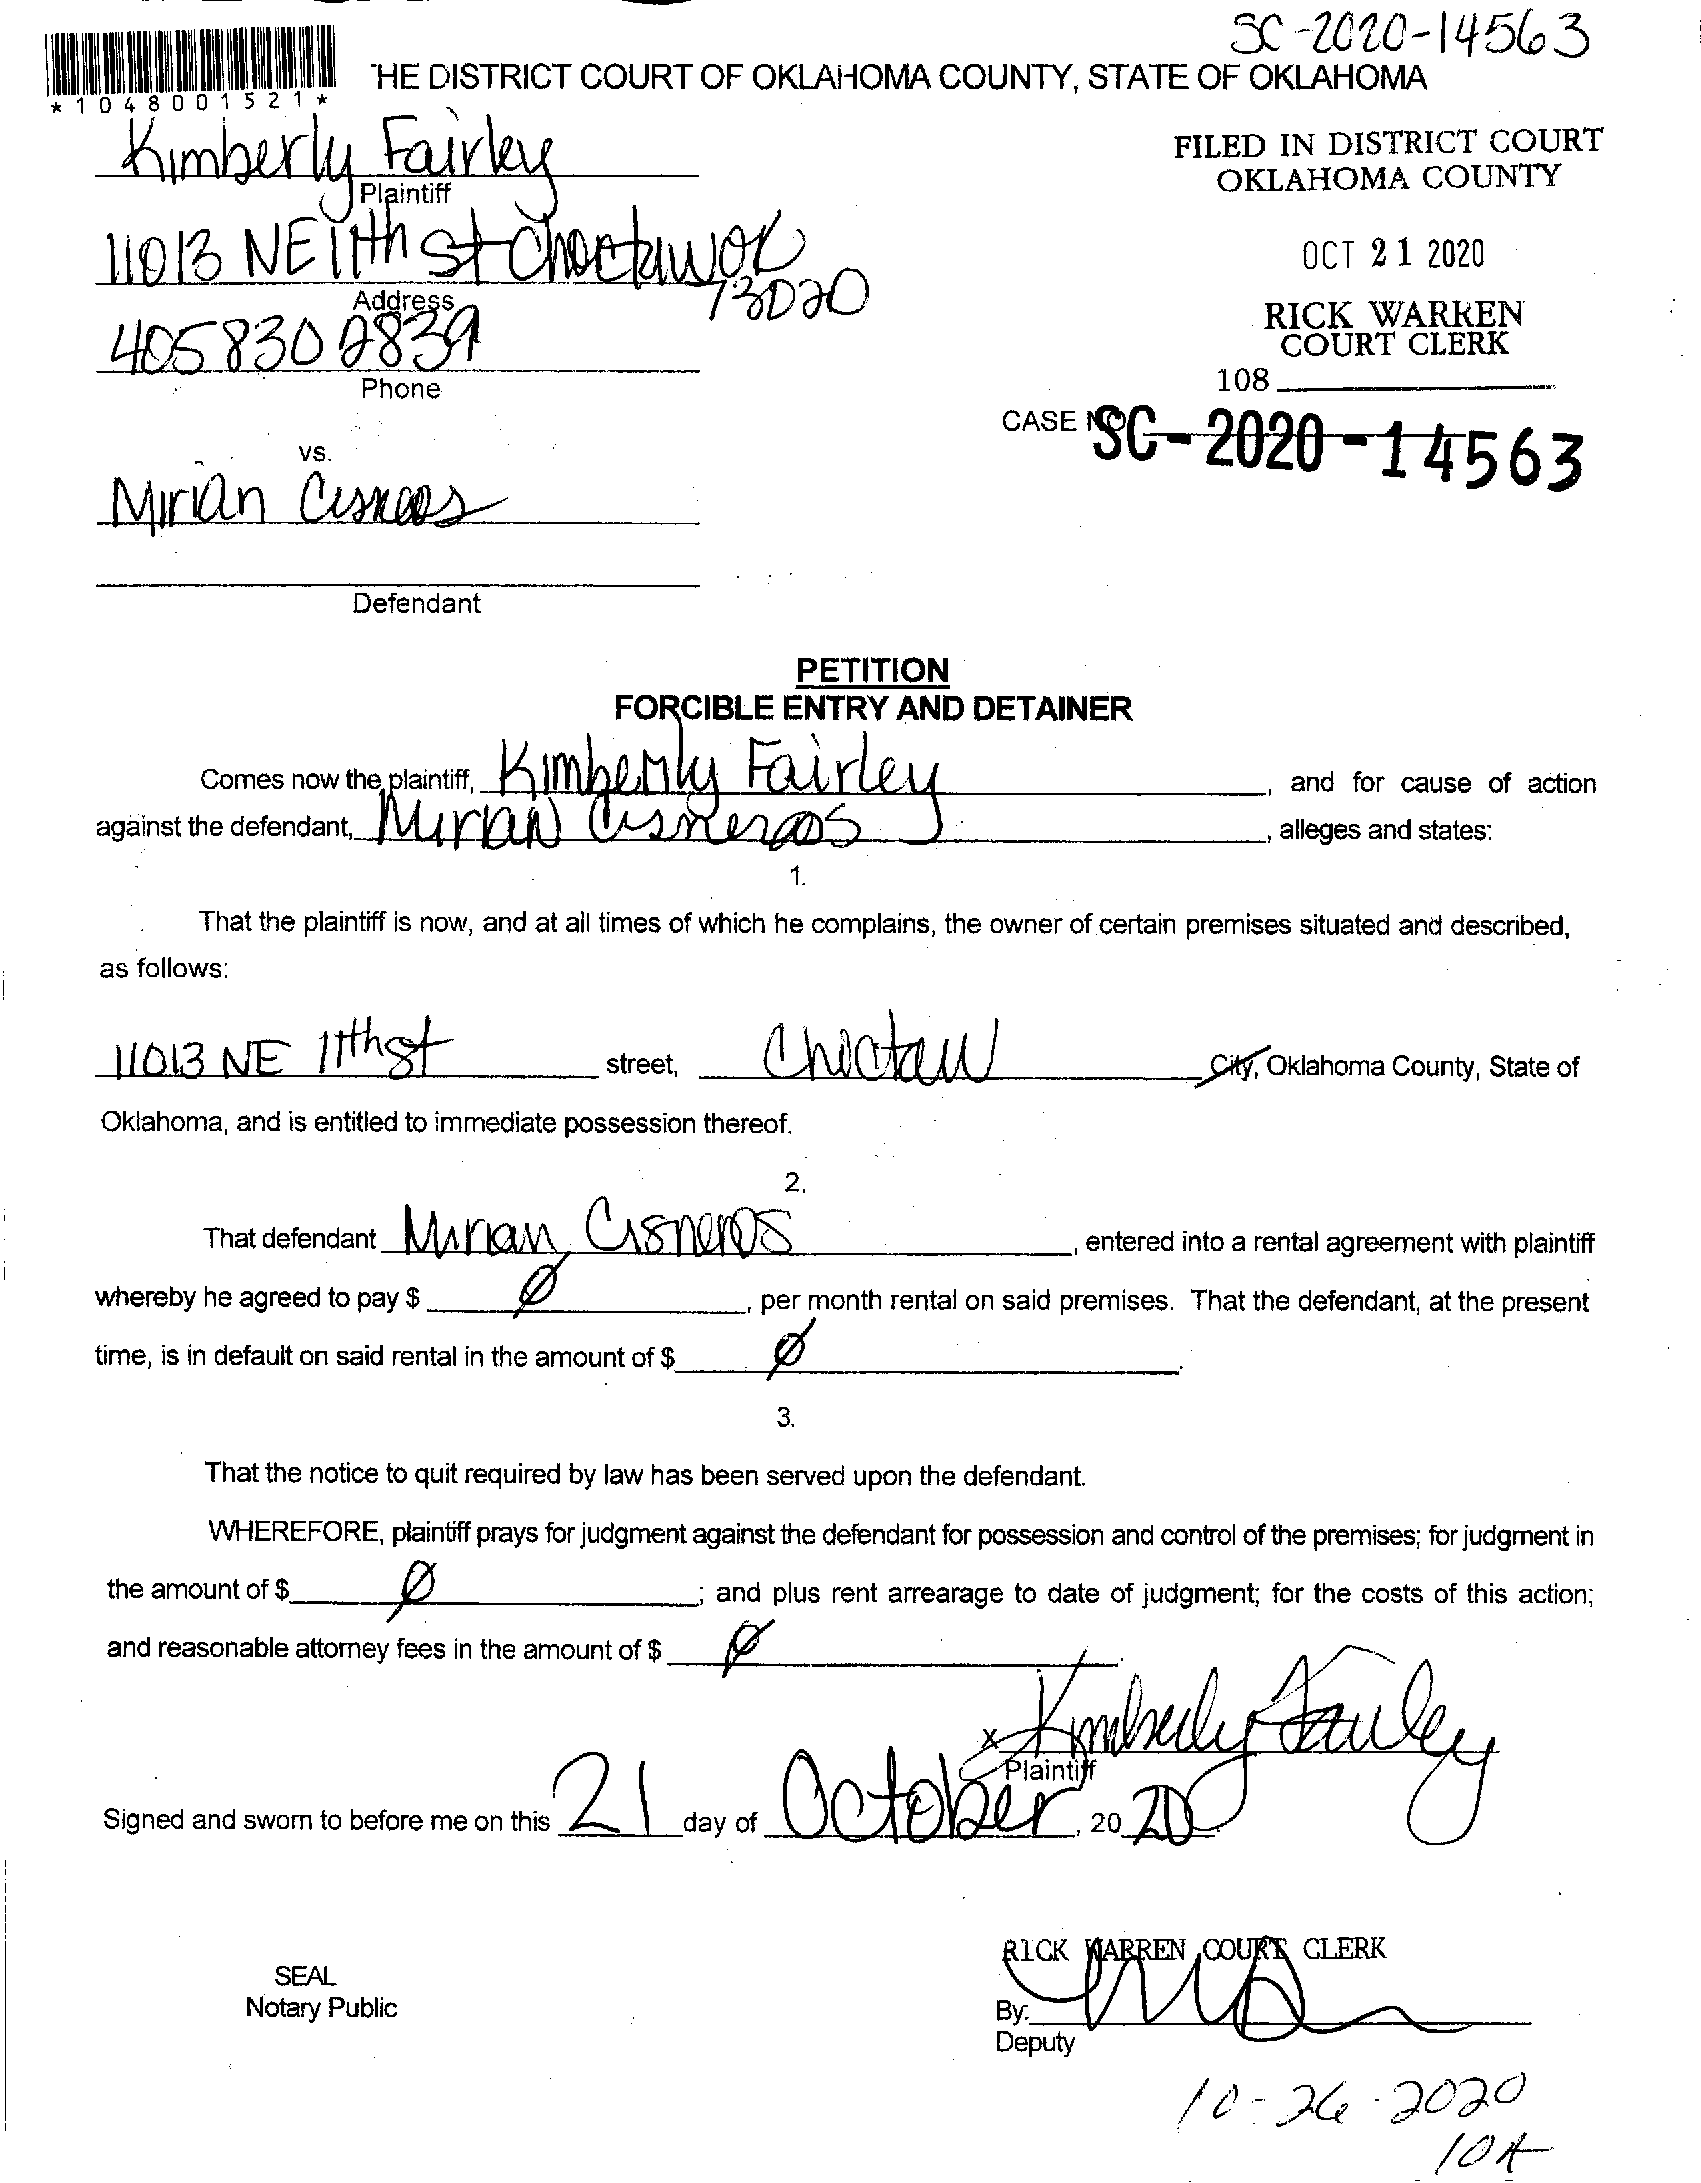 SC-2020-14563
*1048001521*
THE DISTRICT COURT OF OKLAHOMA COUNTY, STATE OF OKLAHOMA
Kimberly Fairley
Plaintiff
FILED IN DISTRICT COURT
OKLAHOMA COUNTY
11013 NE 11th st Choctaw OK
73020
Address
OCT 21 2020
RICK WARREN
COURT CLERK
405 830 2839
Phone
108
CASE NO.
SC-2020-14563
vs.
Mirian Cisneros
Defendant
PETITION
FORCIBLE ENTRY AND DETAINER
Comes now the plaintiff, Kimberly Fairley, and for cause of action
against the defendant, Mirian Cisneros, alleges and states:
1.
That the plaintiff is now, and at all times of which he complains, the owner of certain premises situated and described,
as follows:
11013 NE 11th st street, Choctaw City, Oklahoma County, State of
Oklahoma, and is entitled to immediate possession thereof.
2.
That defendant Mirian Cisneros, entered into a rental agreement with plaintiff
whereby he agreed to pay $ Ø, per month rental on said premises. That the defendant, at the present
time, is in default on said rental in the amount of $ Ø.
3.
That the notice to quit required by law has been served upon the defendant.
WHEREFORE, plaintiff prays for judgment against the defendant for possession and control of the premises; for judgment in
the amount of $ Ø; and plus rent arrearage to date of judgment; for the costs of this action;
and reasonable attorney fees in the amount of $ Ø.
x Kimberly Fairley
Plaintiff
Signed and sworn to before me on this 21 day of October, 20 20.
RICK WARREN COURT CLERK
SEAL
Notary Public
By:
Deputy
10-26-2020
10A